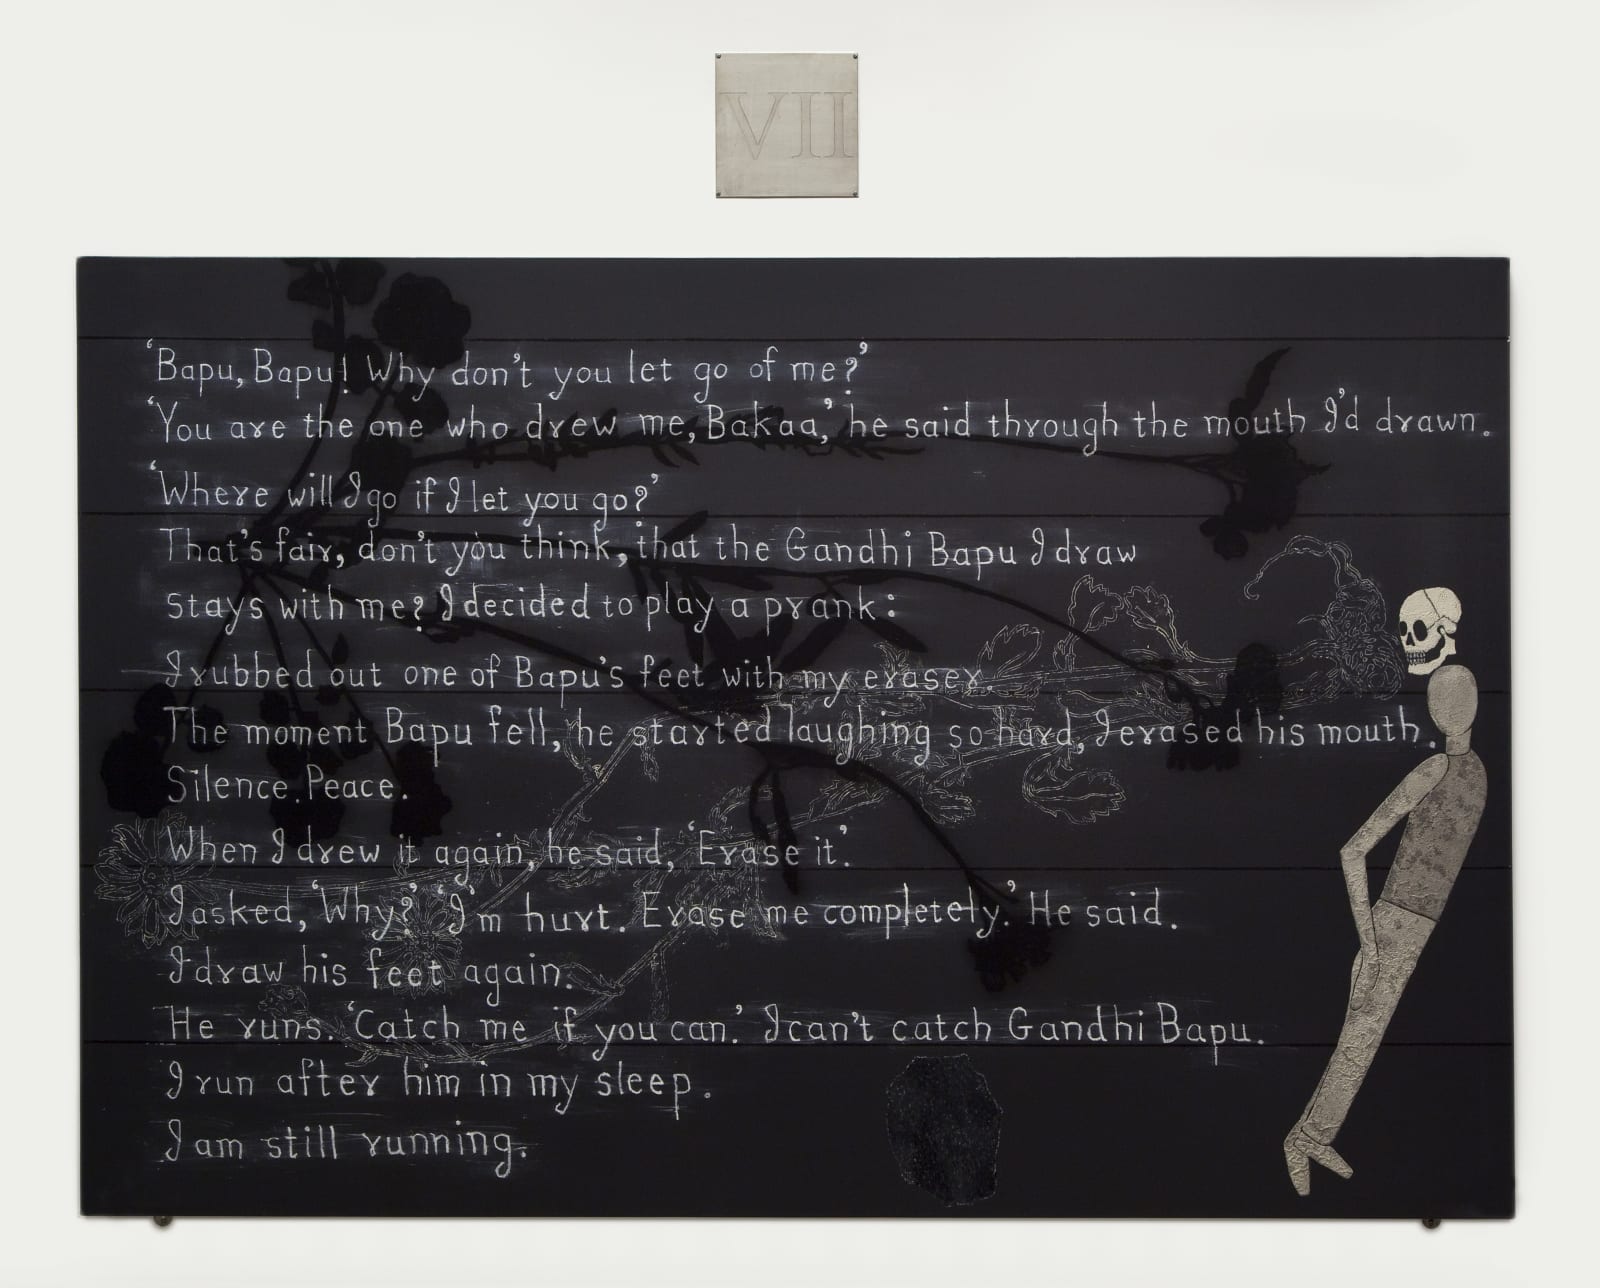 VII
‘Bapu, Bapu! Why don't you let go of me?’
‘You are the one who drew me, Bakaa,’ he said through the mouth I'd drawn.
‘Where will I go if I let you go?’
That's fair, don't you think, that the Gandhi Bapu I draw
stays with me? I decided to play a prank:
I rubbed out one of Bapu's feet with my eraser.
The moment Bapu fell, he started laughing so hard, I erased his mouth.
Silence. Peace.
When I drew it again, he said, ‘Erase it’.
I asked, ‘Why?’ ‘I'm hurt. Erase me completely.’ He said.
I draw his feet again.
He runs. ‘Catch me if you can.’ I can't catch Gandhi Bapu.
I run after him in my sleep.
I am still running.